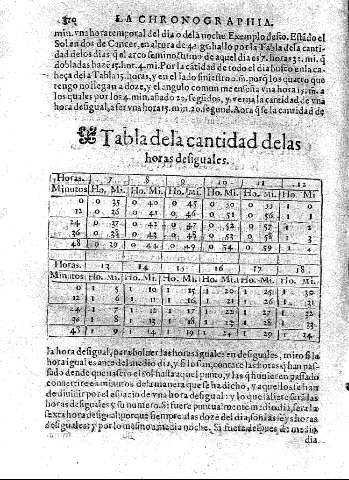 LA CHRONOGRAPHIA.
min. vna hora temporal del dia o dela noche Exemplo desto. Estãdo el
Sol en dos de Cancer, en altura de 40. gs. hallo por la Tabla dela canti
dad delos dias q̃ el arco seminocturno de aquel dia es 7. horas 32. mi. q̃
dobladas hazẽ 15. hor. 4. mi. Por la cãtidad de todo el dia busco en la ca
beça dela Tabla 15. horas, y en el lado siniestro 0. m. porq̃ los quatro que
tengo no llegan a doze, y el angulo comun me enseña vna hora 15. m. a
los quales por los 4. min. añado 20. segũdos, y verna la cantidad de vna
hora desigual, a ser vna hora 15. min. 20. segund. Aora q̃ se la cantidad de
Tabla dela cantidad delas
horas desiguales.
Horas. 7 8 9 10 11 12
Minutos Ho. Mi. Ho. Mi. Ho. Mi. Ho. Mi. Ho. Mi. Ho. Mi
0 0 35 0 40 0 45 0 50 0 55 1 0
12 0 36 0 41 0 46 0 51 0 56 1 1
24 0 37 0 42 0 47 0 52 0 57 1 2
36 0 38 0 43 0 48 0 53 0 58 1 3
48 0 39 0 44 0 49 0 54 0 59 1 4
Horas. 13 14 15 16 17 18
Minutos Ho. Mi. Ho. Mi. Ho. Mi. Ho. Mi. Ho. Mi. Ho. Mi.
0 1 5 1 10 1 15 1 20 1 25 1 30
12 1 6 1 11 1 16 1 21 1 26 1 31
24 1 7 1 12 1 17 1 22 1 27 1 32
36 1 8 1 13 1 18 1 23 1 28 1 33
48 1 9 1 14 1 19 1 24 1 29 1 34
la hora desigual, para boluer las horas iguales en desiguales, miro si la
hora igual es ante del medio dia, y si lo son, contare las horas q̃ han pas
sado dende que nascio el sol hasta aquel punto, y las q̃ huuieren passado
conuertire a minutos dela manera que se ha dicho, y aquellos se han
de diuidir por el espacio de vna hora desigual: y lo que saliere seran las
horas desiguales y su numero. Si fuere puntualmente medio dia, sera la
sexta hora desigual porque siempre a las doze del dia, son las seys horas
desiguales: y por lo mesmo a media noche. Si fuere despues de medio
dia